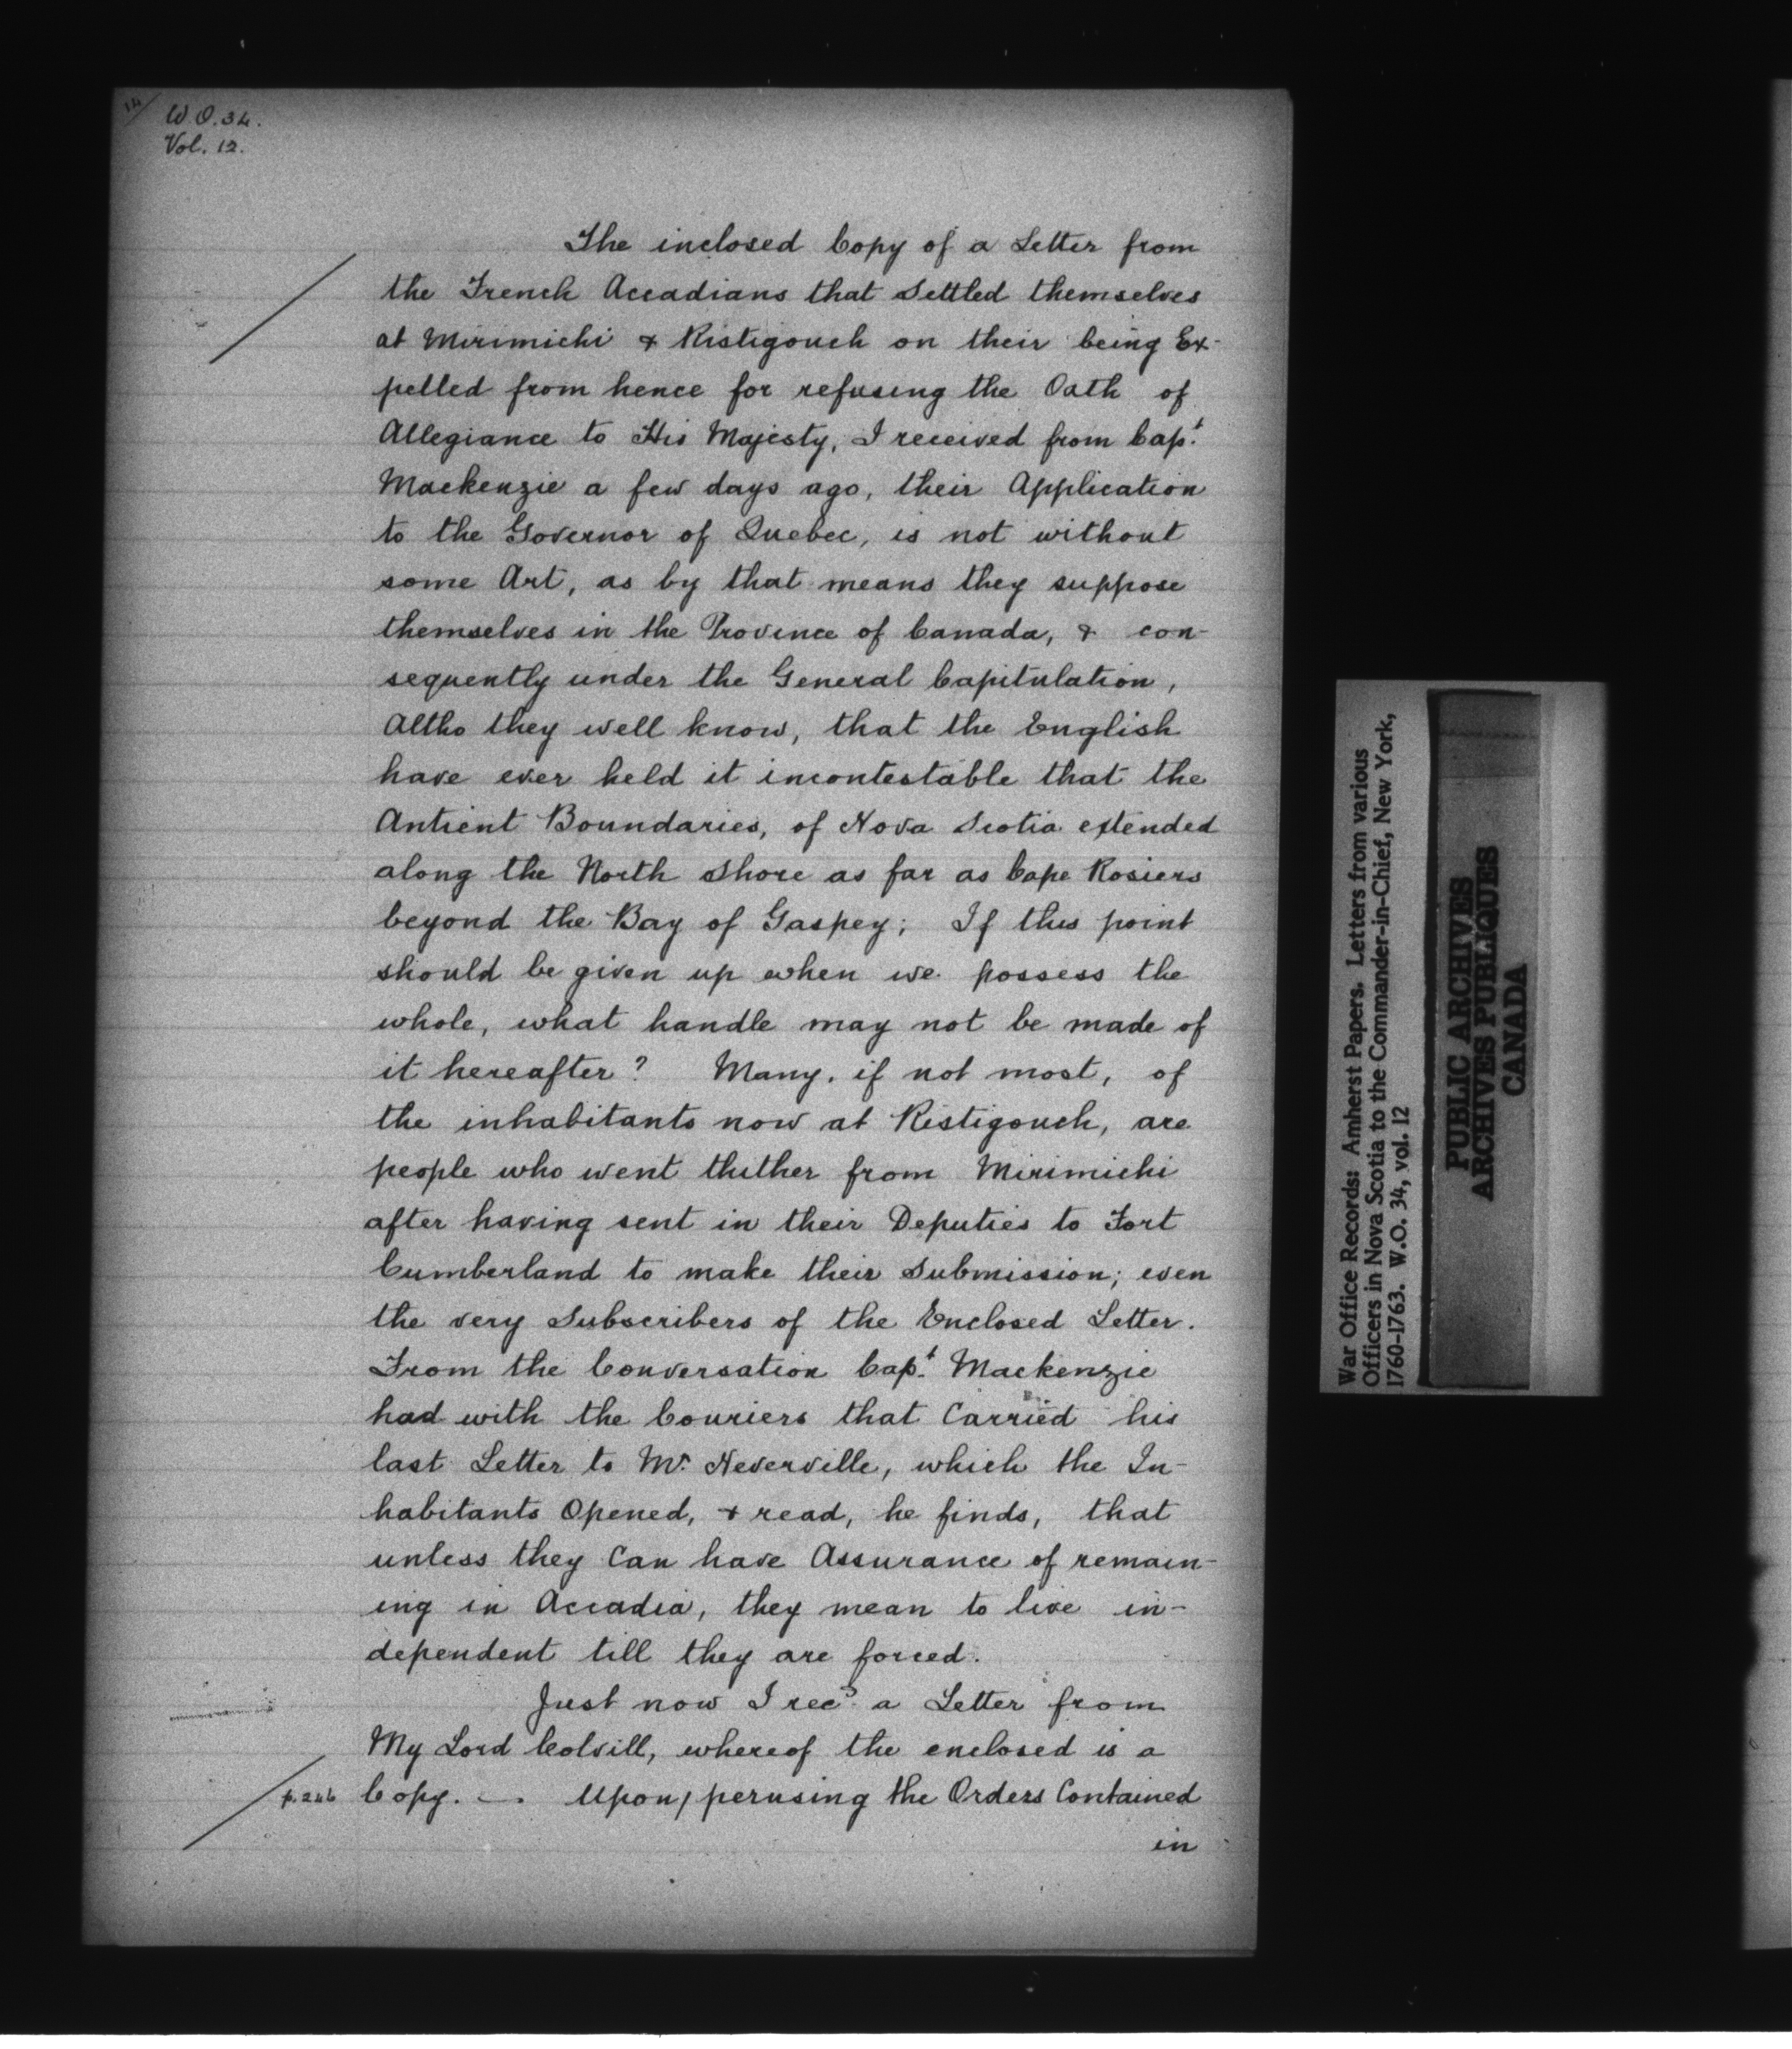 14
W.O. 34.
Vol. 12.
The inclosed Copy of a Letter from
the French Accadians that Settled themselves
at Mirimichi & Ristigouch on their being Ex-
pelled from hence for refusing the Oath of
Allegiance to His Majesty, I received from Capt.
Mackenzie a few days ago, their Application
to the Governor of Quebec, is not without
some Art, as by that means they suppose
themselves in the Province of Canada, & con-
sequently under the General Capitulation,
Altho they well know, that the English
have ever held it incontestable that the
Antient Boundaries, of Nova Scotia extended
along the North Shore as far as Cape Rosiers
beyond the Bay of Gaspey; If this point
should be given up when we possess the
whole, what handle may not be made of
it hereafter? Many, if not most, of
the inhabitants now at Ristigouch, are
people who went thither from Mirimichi
after having sent in their Deputies to Fort
Cumberland to make their Submission; even
the very Subscribers of the Enclosed Letter.
From the Conversation Capt. Mackenzie
had with the Couriers that Carried his
last Letter to Mr. Neverville, which the In-
habitants Opened, & read, he finds, that
unless they Can have Assurance of remain-
ing in Accadia, they mean to live in-
dependent till they are forced.
Just now I recd. a Letter from
My Lord Colvill, whereof the enclosed is a
p. 246 Copy. —. Upon perusing the Orders Contained
in
War Office Records: Amherst Papers. Letters from various
Officers in Nova Scotia to the Commander-in-Chief, New York,
1760-1763. W.O. 34, vol. 12
PUBLIC ARCHIVES
ARCHIVES PUBLIQUES
CANADA